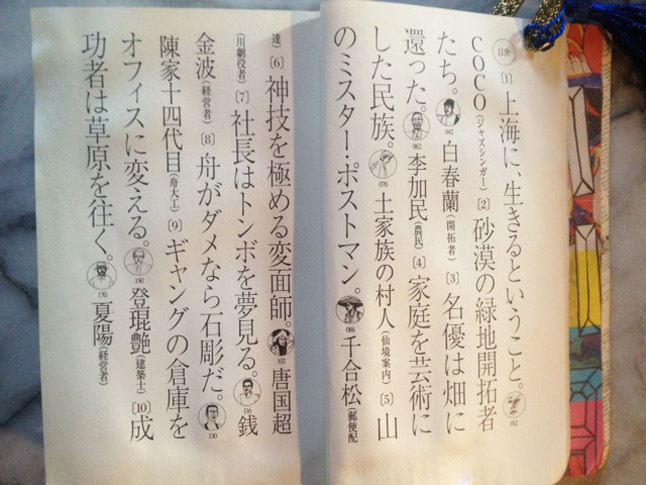 目次 [1] 上海に、生きるということ。 012
COCO（ジャズシンガー） [2] 砂漠の緑地開拓者
たち。 042 白春蘭（開拓者） [3] 名優は畑に
還った。 062 李加民（農民） [4] 家庭を芸術に
した民族。 076 土家族の村人（仙境案内） [5] 山
のミスター・ポストマン。 088 千合松（郵便配
達） [6] 神技を極める変面師。 102 唐国超
（川劇役者） [7] 社長はトンボを夢見る。 116 銭
金波（経営者） [8] 舟がダメなら石彫だ。 130
陳家十四代目（舟大工） [9] ギャングの倉庫を
オフィスに変える。 150 登琨艶（建築士） [10] 成
功者は草原を往く。 170 夏陽（経営者）